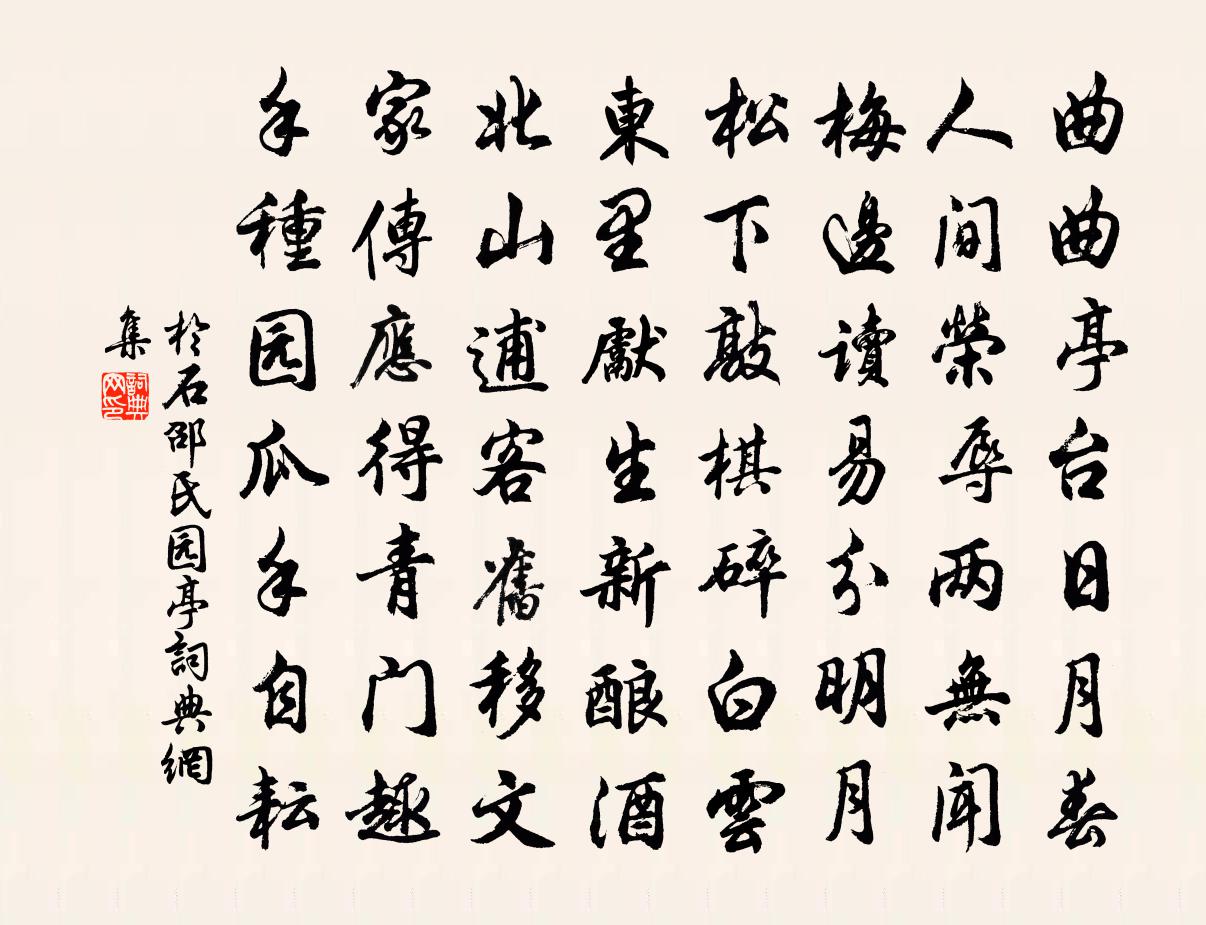 曲曲亭台日月春
人间榮辱两無闻
梅邊讀易分明月
松下敲棋碎白雲
東里獻生新酿酒
北山逋客舊移文
家傳應得青门趣
手種园瓜手自耘
於石邵氏园亭詞典網
集
詞典网印